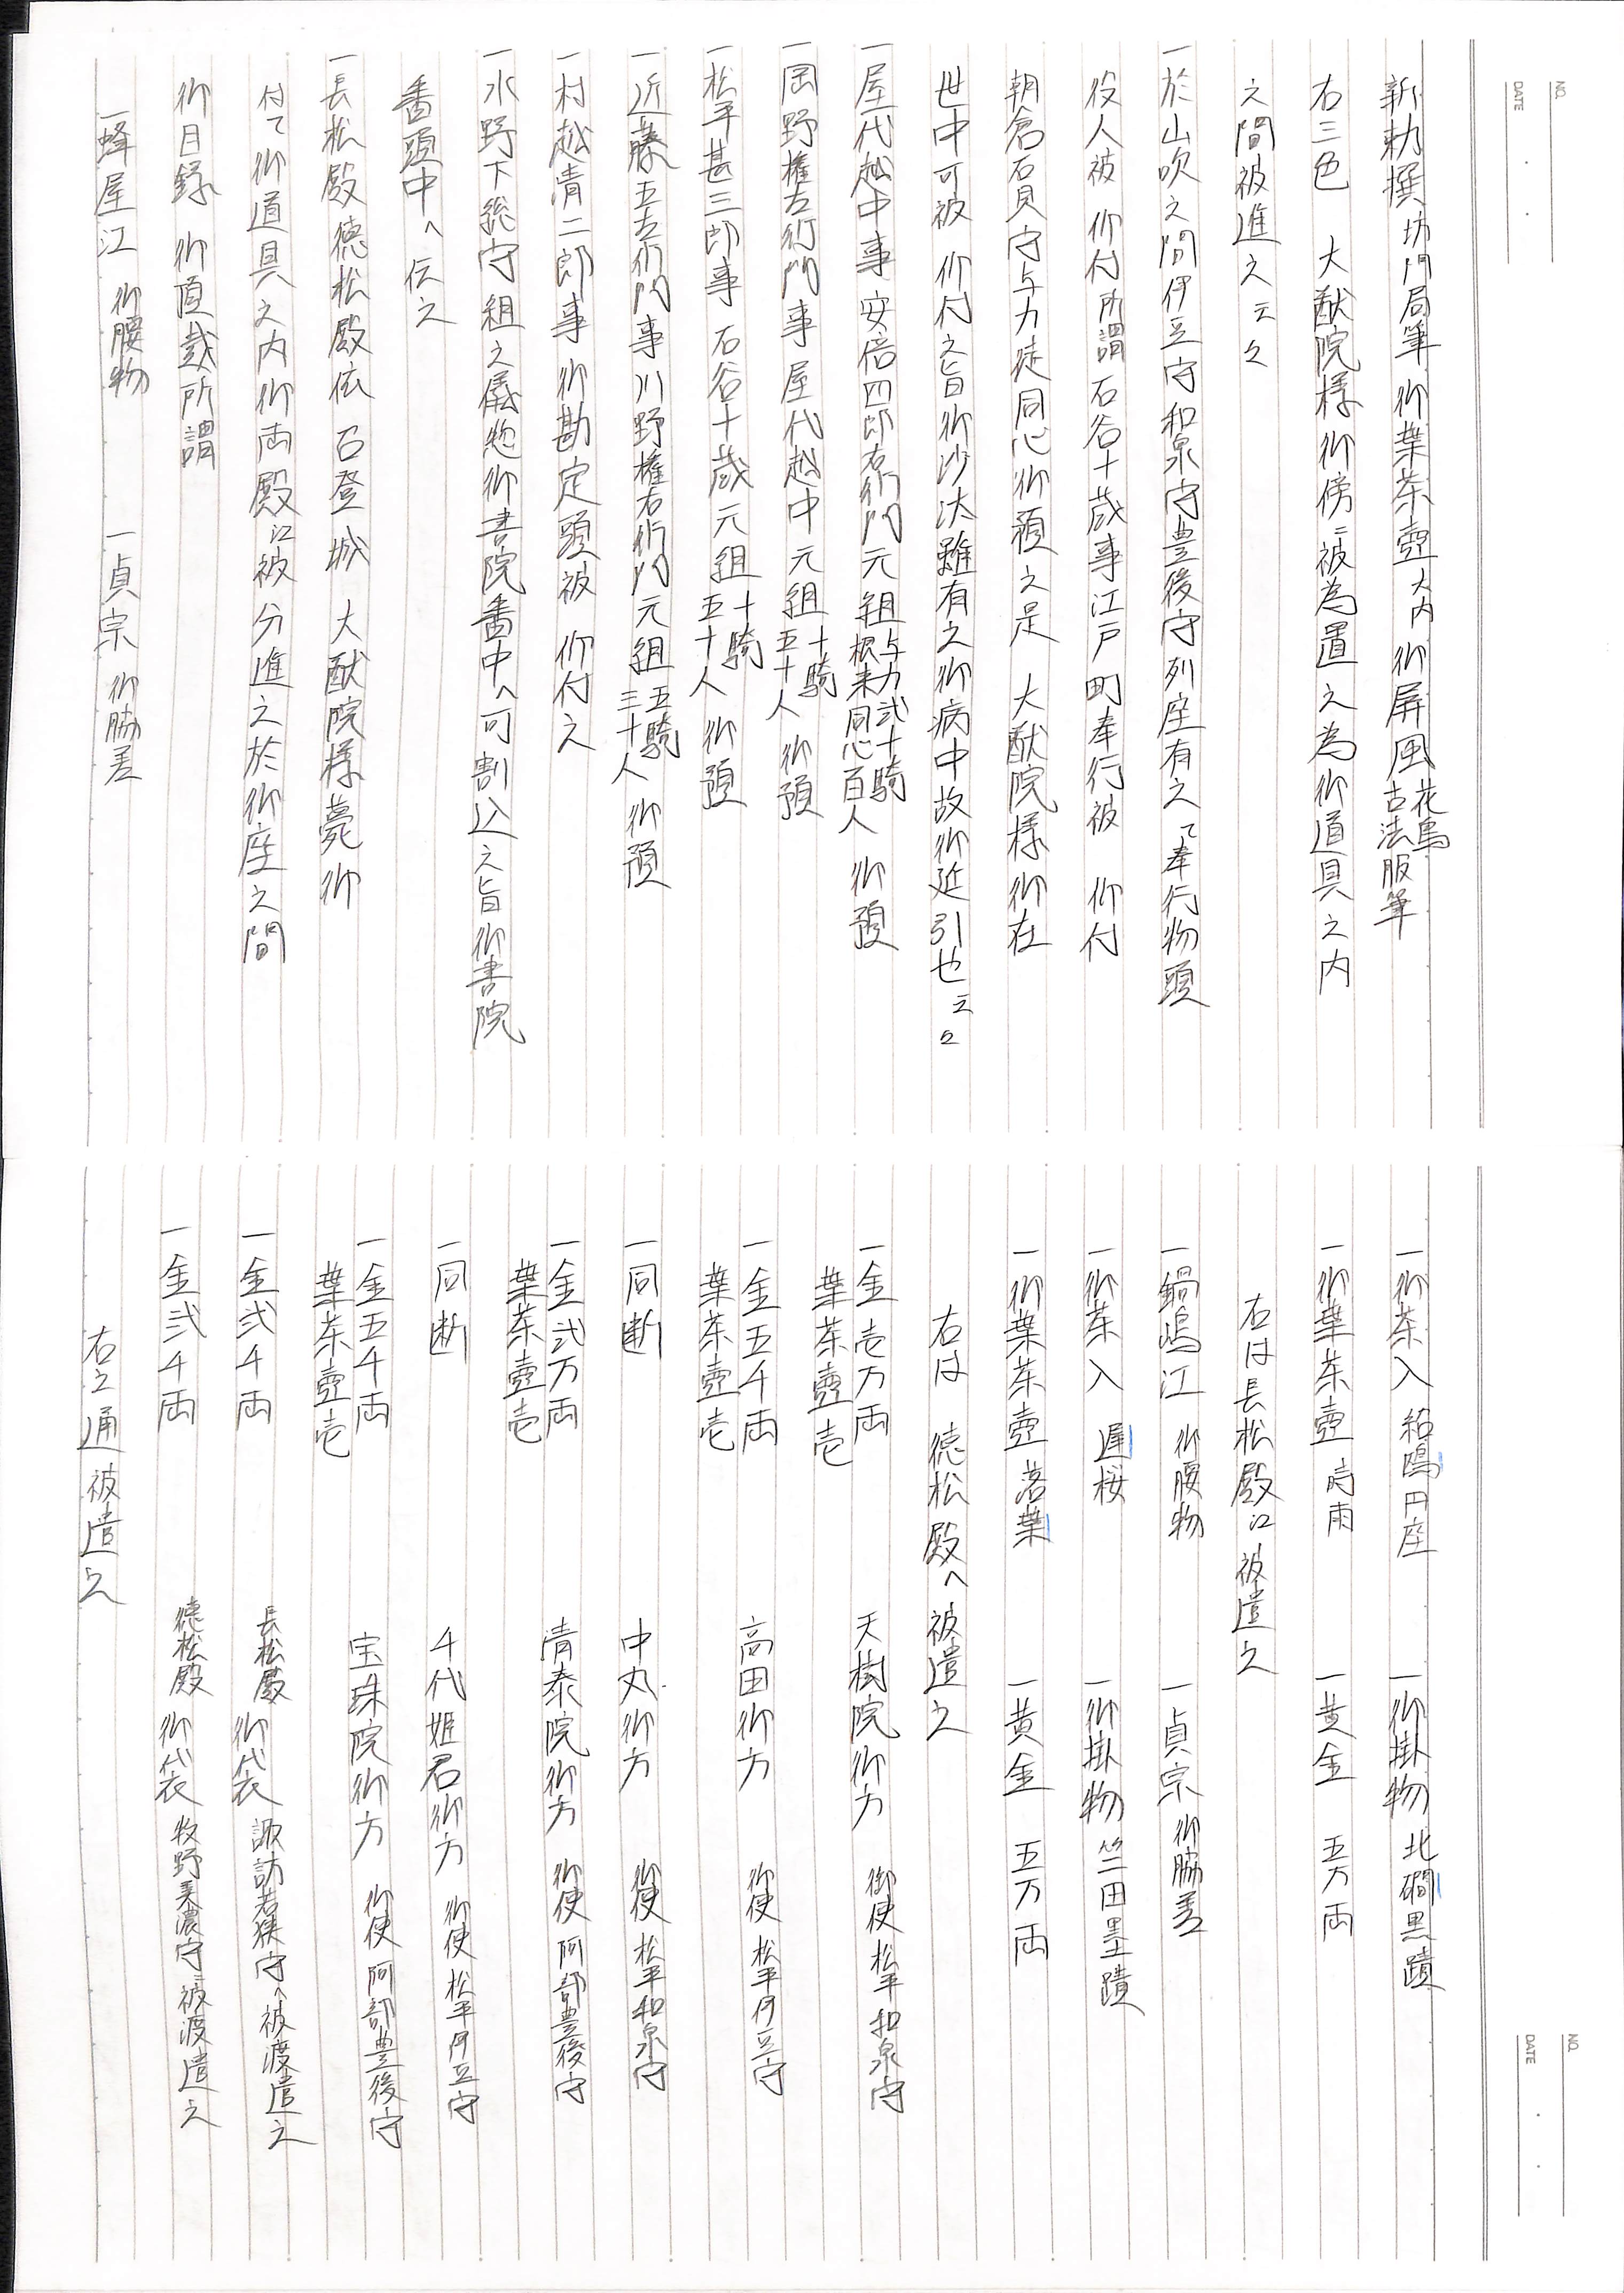 新勅撰坊門局筆 御葉茶壺大内 御屏風花鳥古法服筆
右三色 大猷院様御傍ニ被為置之為御道具之内
之間被進之云々
一於山吹之間伊豆守和泉守豊後守列座有之而奉行物頭
役人被 仰付所謂石谷十蔵事江戸町奉行被 仰付
朝倉石見守与力徒同心御預之是 大猷院様御在
世中可被 仰付之旨御沙汰雖有之御病中故御延引也云々
一屋代越中事安倍四郎右衛門元組与力弐十騎根来同心百人御預
一岡野権左衛門事屋代越中元組十騎五十人御預
一松平甚三郎事石谷十蔵元組十騎五十人御預
一近藤五左衛門事川野権右衛門元組五騎三十人御預
一村越清二郎事御勘定頭被 仰付之
一水野下総守組之儀惣御書院番中へ可割込之旨御書院
番頭中へ伝之
一長松殿徳松殿依 召登城 大猷院様薨御
付て御道具之内御両殿江被分進之於御座之間
御目録 御頂戴所謂
一蜂屋江 御腰物 一貞宗 御脇差
NO.
DATE
一御茶入 紹鴎円座 一御掛物 北礀墨蹟
一御葉茶壺 時雨 一黄金 五万両
右は長松殿江被遣之
一鍋嶋江 御腰物 一貞宗 御脇差
一御茶入 遅桜 一御掛物 竺田墨蹟
一御葉茶壺 落葉 一黄金 五万両
右は 徳松殿へ被遣之
一金壱万両 天樹院御方 御使 松平和泉守
葉茶壺壱
一金五千両 高田御方 御使 松平伊豆守
葉茶壺壱
一同断 中丸御方 御使 松平和泉守
一金弐万両 清泰院御方 御使 阿部豊後守
葉茶壺壱
一同断 千代姫君御方 御使 松平伊豆守
一金五千両 宝珠院御方 御使 阿部豊後守
葉茶壺壱
一金弐千両 長松殿 御袋 諏訪若狭守へ被渡遣之
一金弐千両 徳松殿 御袋 牧野美濃守ニ被渡遣之
右之通被遣之
NO.
DATE